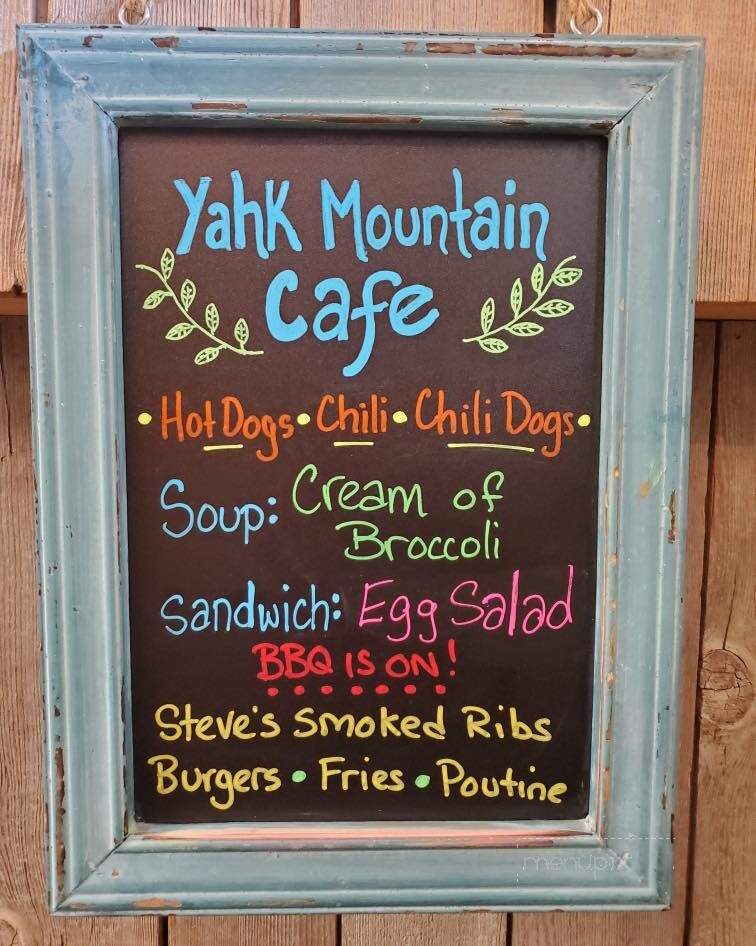 Yahk Mountain
Cafe
• Hot Dogs • Chili • Chili Dogs •
Soup: Cream of
Broccoli
Sandwich: Egg Salad
BBQ IS ON!
Steve's Smoked Ribs
Burgers • Fries • Poutine
menupix